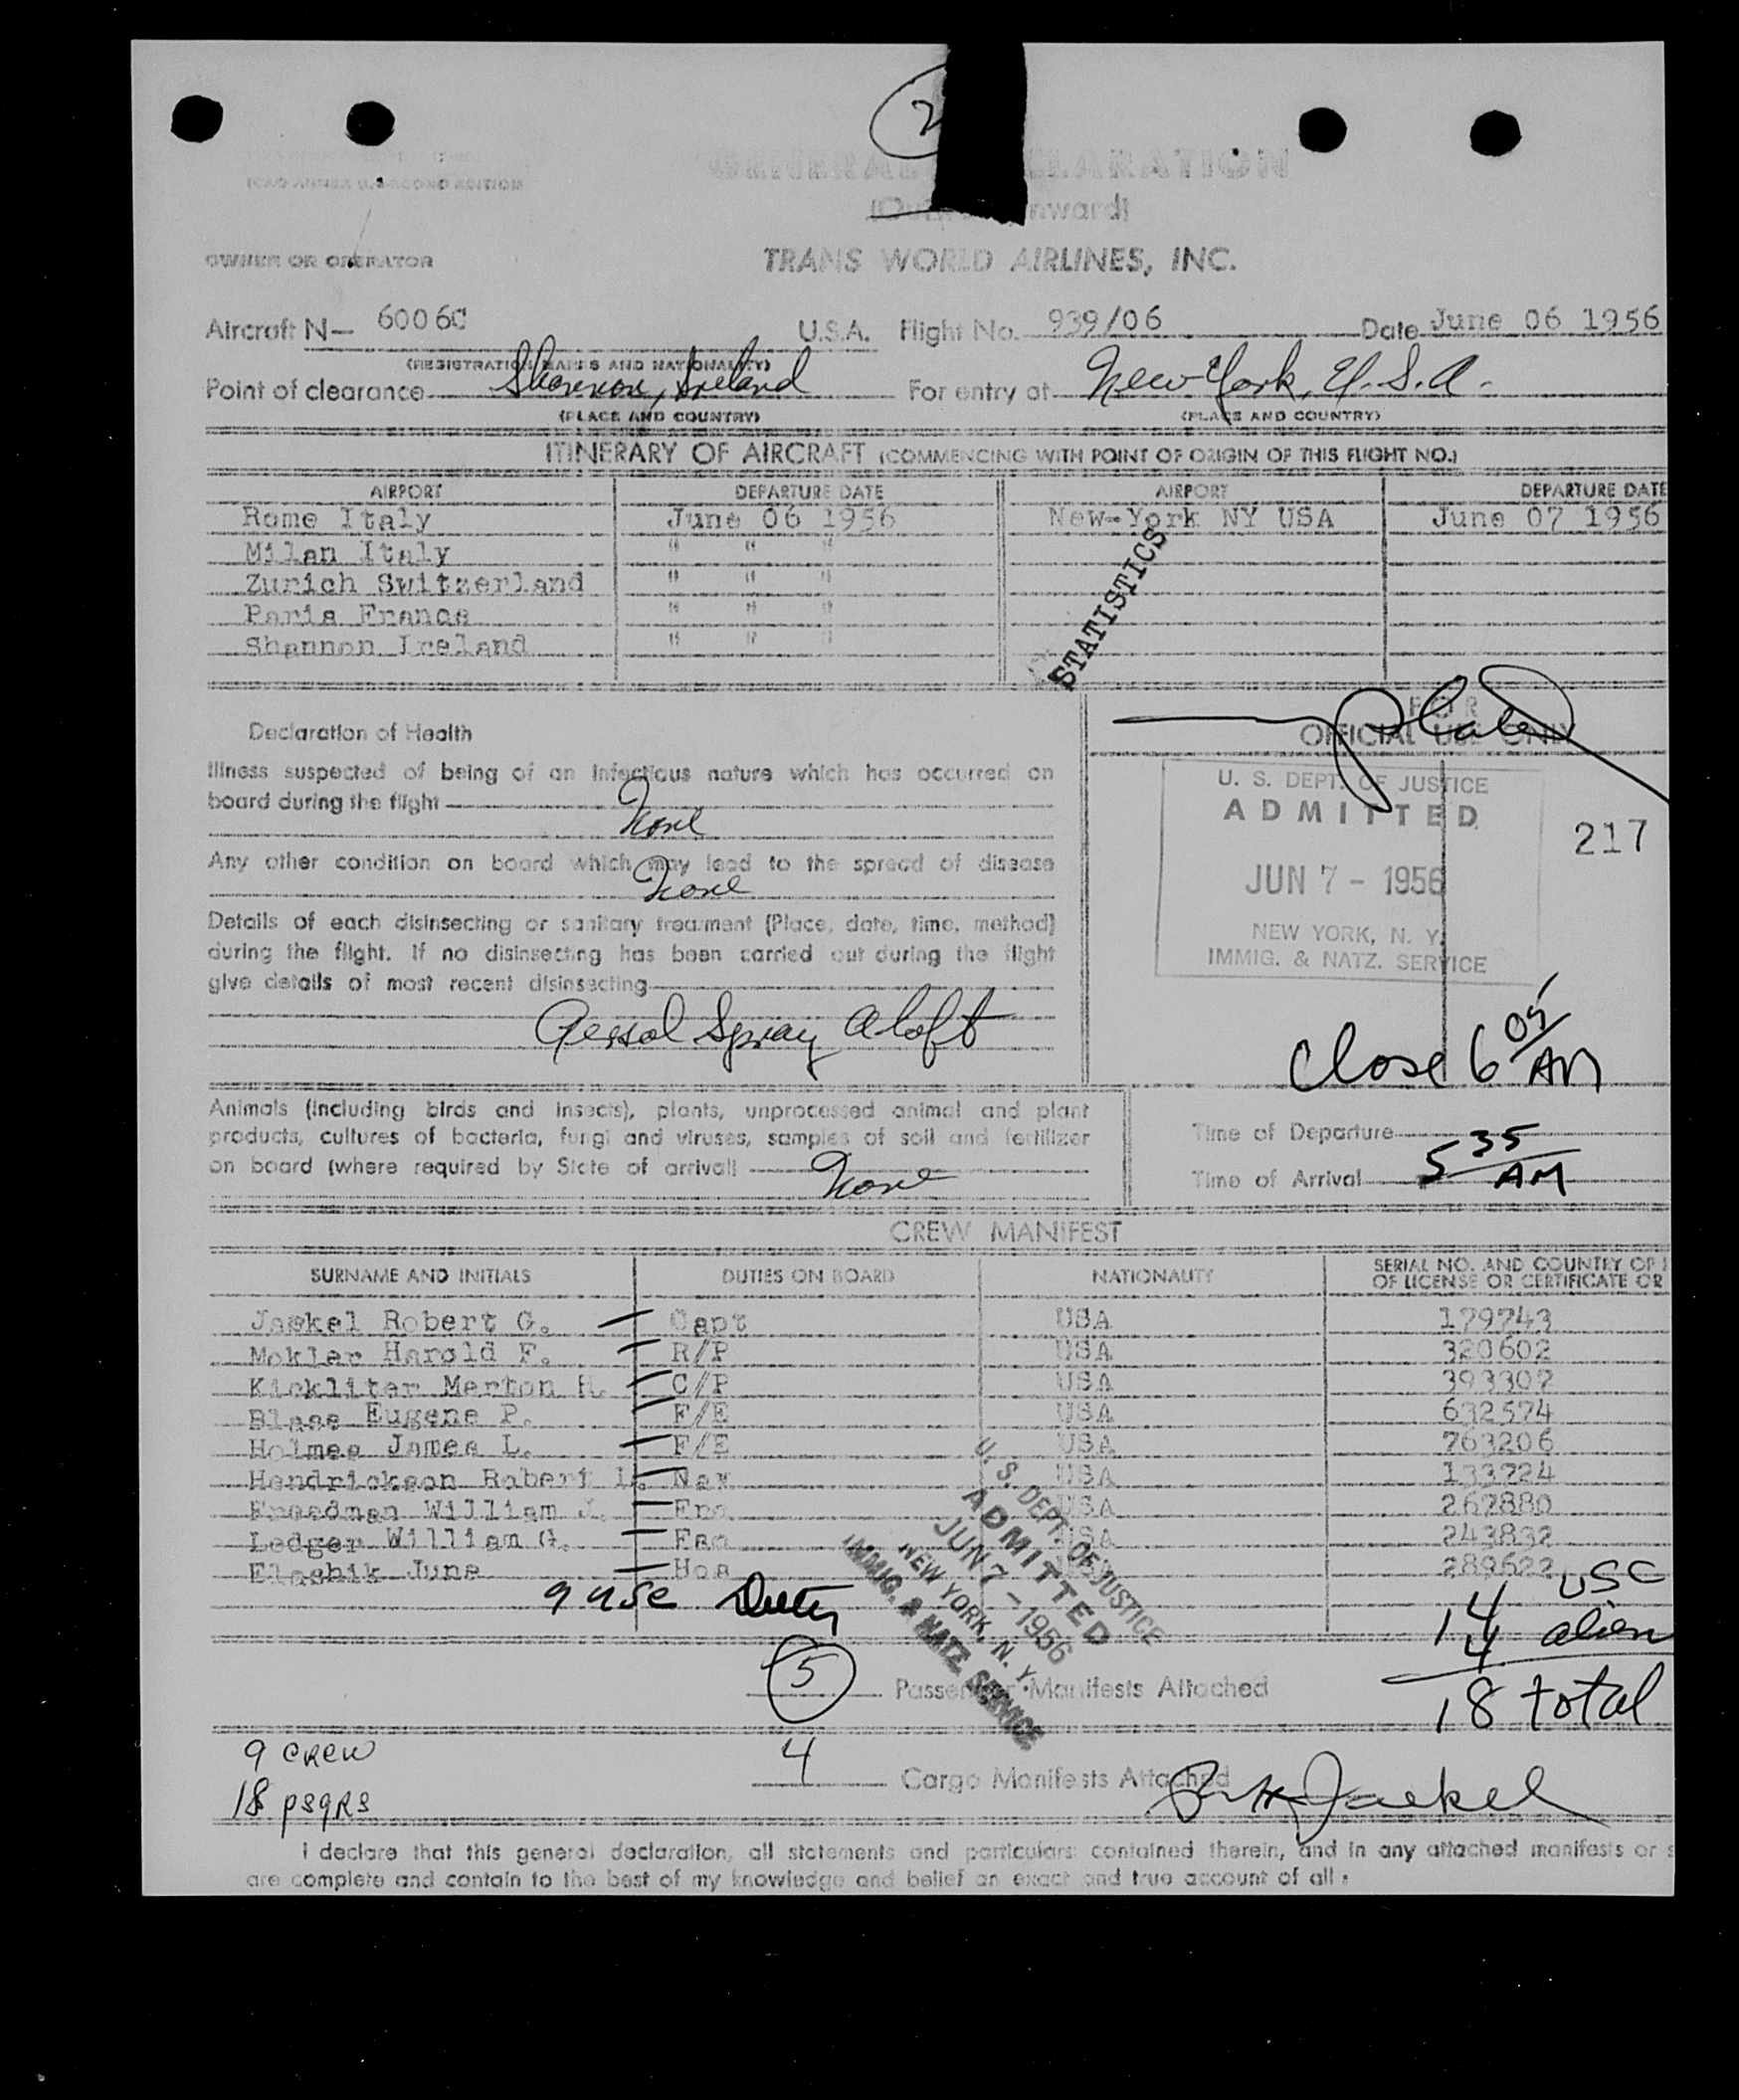 2
ICAO ANNEX 9, SECOND EDITION
GENERAL DECLARATION
(Outward/Inward)
OWNER OR OPERATOR
TRANS WORLD AIRLINES, INC.
Aircraft N— 6006C U.S.A. Flight No. 939/06 Date June 06 1956
(REGISTRATION MARKS AND NATIONALITY)
Point of clearance Shannon, Ireland For entry at New York, U.S.A.
(PLACE AND COUNTRY) (PLACE AND COUNTRY)
ITINERARY OF AIRCRAFT (COMMENCING WITH POINT OF ORIGIN OF THIS FLIGHT NO.)
AIRPORT DEPARTURE DATE AIRPORT DEPARTURE DATE
Rome Italy June 06 1956 New-York NY USA June 07 1956
Milan Italy " " "
Zurich Switzerland " " "
Paris France " " "
Shannon Ireland " " "
STATISTICS
Declaration of Health
FOR
OFFICIAL USE ONLY
Illness suspected of being of an infectious nature which has occurred on
board during the flight
None
U. S. DEPT. OF JUSTICE
ADMITTED
JUN 7 - 1956
NEW YORK, N. Y.
IMMIG. & NATZ. SERVICE
217
Any other condition on board which may lead to the spread of disease
None
Details of each disinsecting or sanitary treatment (Place, date, time, method)
during the flight. If no disinsecting has been carried out during the flight
give details of most recent disinsecting
Aersol Spray Aloft
Close 6 05/AM
Animals (including birds and insects), plants, unprocessed animal and plant
products, cultures of bacteria, fungi and viruses, samples of soil and fertilizer
on board (where required by State of arrival)
None
Time of Departure
Time of Arrival 5 35/AM
CREW MANIFEST
SURNAME AND INITIALS DUTIES ON BOARD NATIONALITY SERIAL NO. AND COUNTRY OF I
OF LICENSE OR CERTIFICATE OR
Jaekel Robert G. Capt USA 179743
Mokler Harold F. R/P USA 320602
Kickliter Merton H. C/P USA 393307
Blase Eugene P. F/E USA 632574
Holmes James L. F/E USA 763206
Hendrickson Robert L. Nav USA 133724
Freedman William J. USA 267880
Ledger William G. USA 243832
Elashik June Hos 289622
9 USC Duty
U. S. DEPT. OF JUSTICE
ADMITTED
JUN 7 - 1956
NEW YORK, N. Y.
IMMIG. & NATZ. SERVICE
14 USC
4 alien
18 total
5 Passenger Manifests Attached
9 CREW
18 psgRs
4 Cargo Manifests Attached
Jaekel
I declare that this general declaration, all statements and particulars contained therein, and in any attached manifests or s
are complete and contain to the best of my knowledge and belief an exact and true account of all